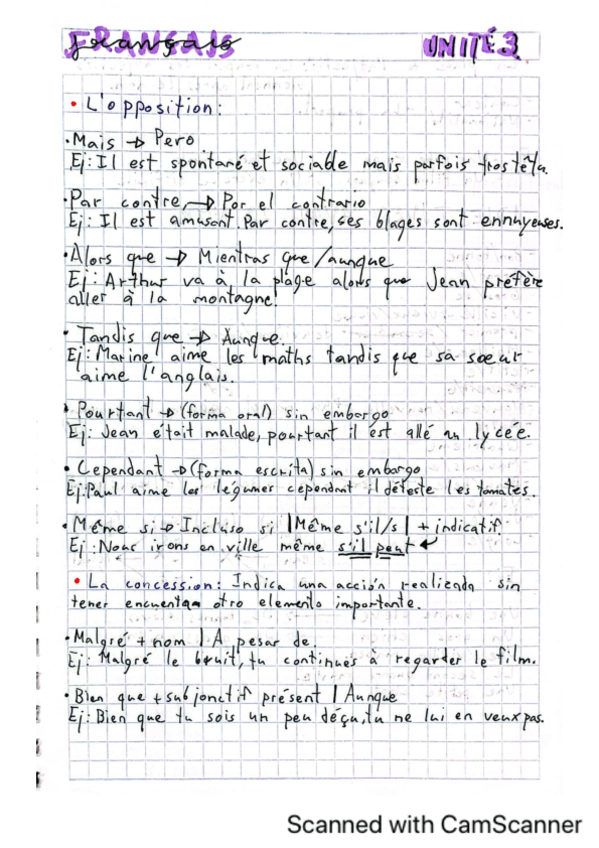 Français UNITÉ 3
• L'opposition:
• Mais → Pero
Ej: Il est spontané et sociable mais parfois
• Par contre, → Por el contrario
Ej: Il est amusant. Par contre, ses blages sont ennuyeuses.
• Alors que → Mientras que/aunque
Ej: Arthur va à la plage alors que Jean préfère
aller à la montagne.
• Tandis que → Aunque.
Ej: Marine aime les maths tandis que sa sœur
aime l'anglais.
• Pourtant → (forma oral) sin embargo
Ej: Jean était malade, pourtant il est allé au lycée.
• Cependant → (forma escrita) sin embargo
Ej: Paul aime les légumes cependant il déteste les tomates.
• Même si → Incluso si | Même s'il/s | + indicatif.
Ej: Nous irons en ville même s'il peut
• La concession: Indica una acción realizada sin
tener encuenta otro elemento importante.
• Malgré + nom | A pesar de
Ej: Malgré le bruit, tu continues à regarder le film.
• Bien que + subjonctif présent | Aunque
Ej: Bien que tu sois un peu déçu, tu ne lui en veux pas.
Scanned with CamScanner